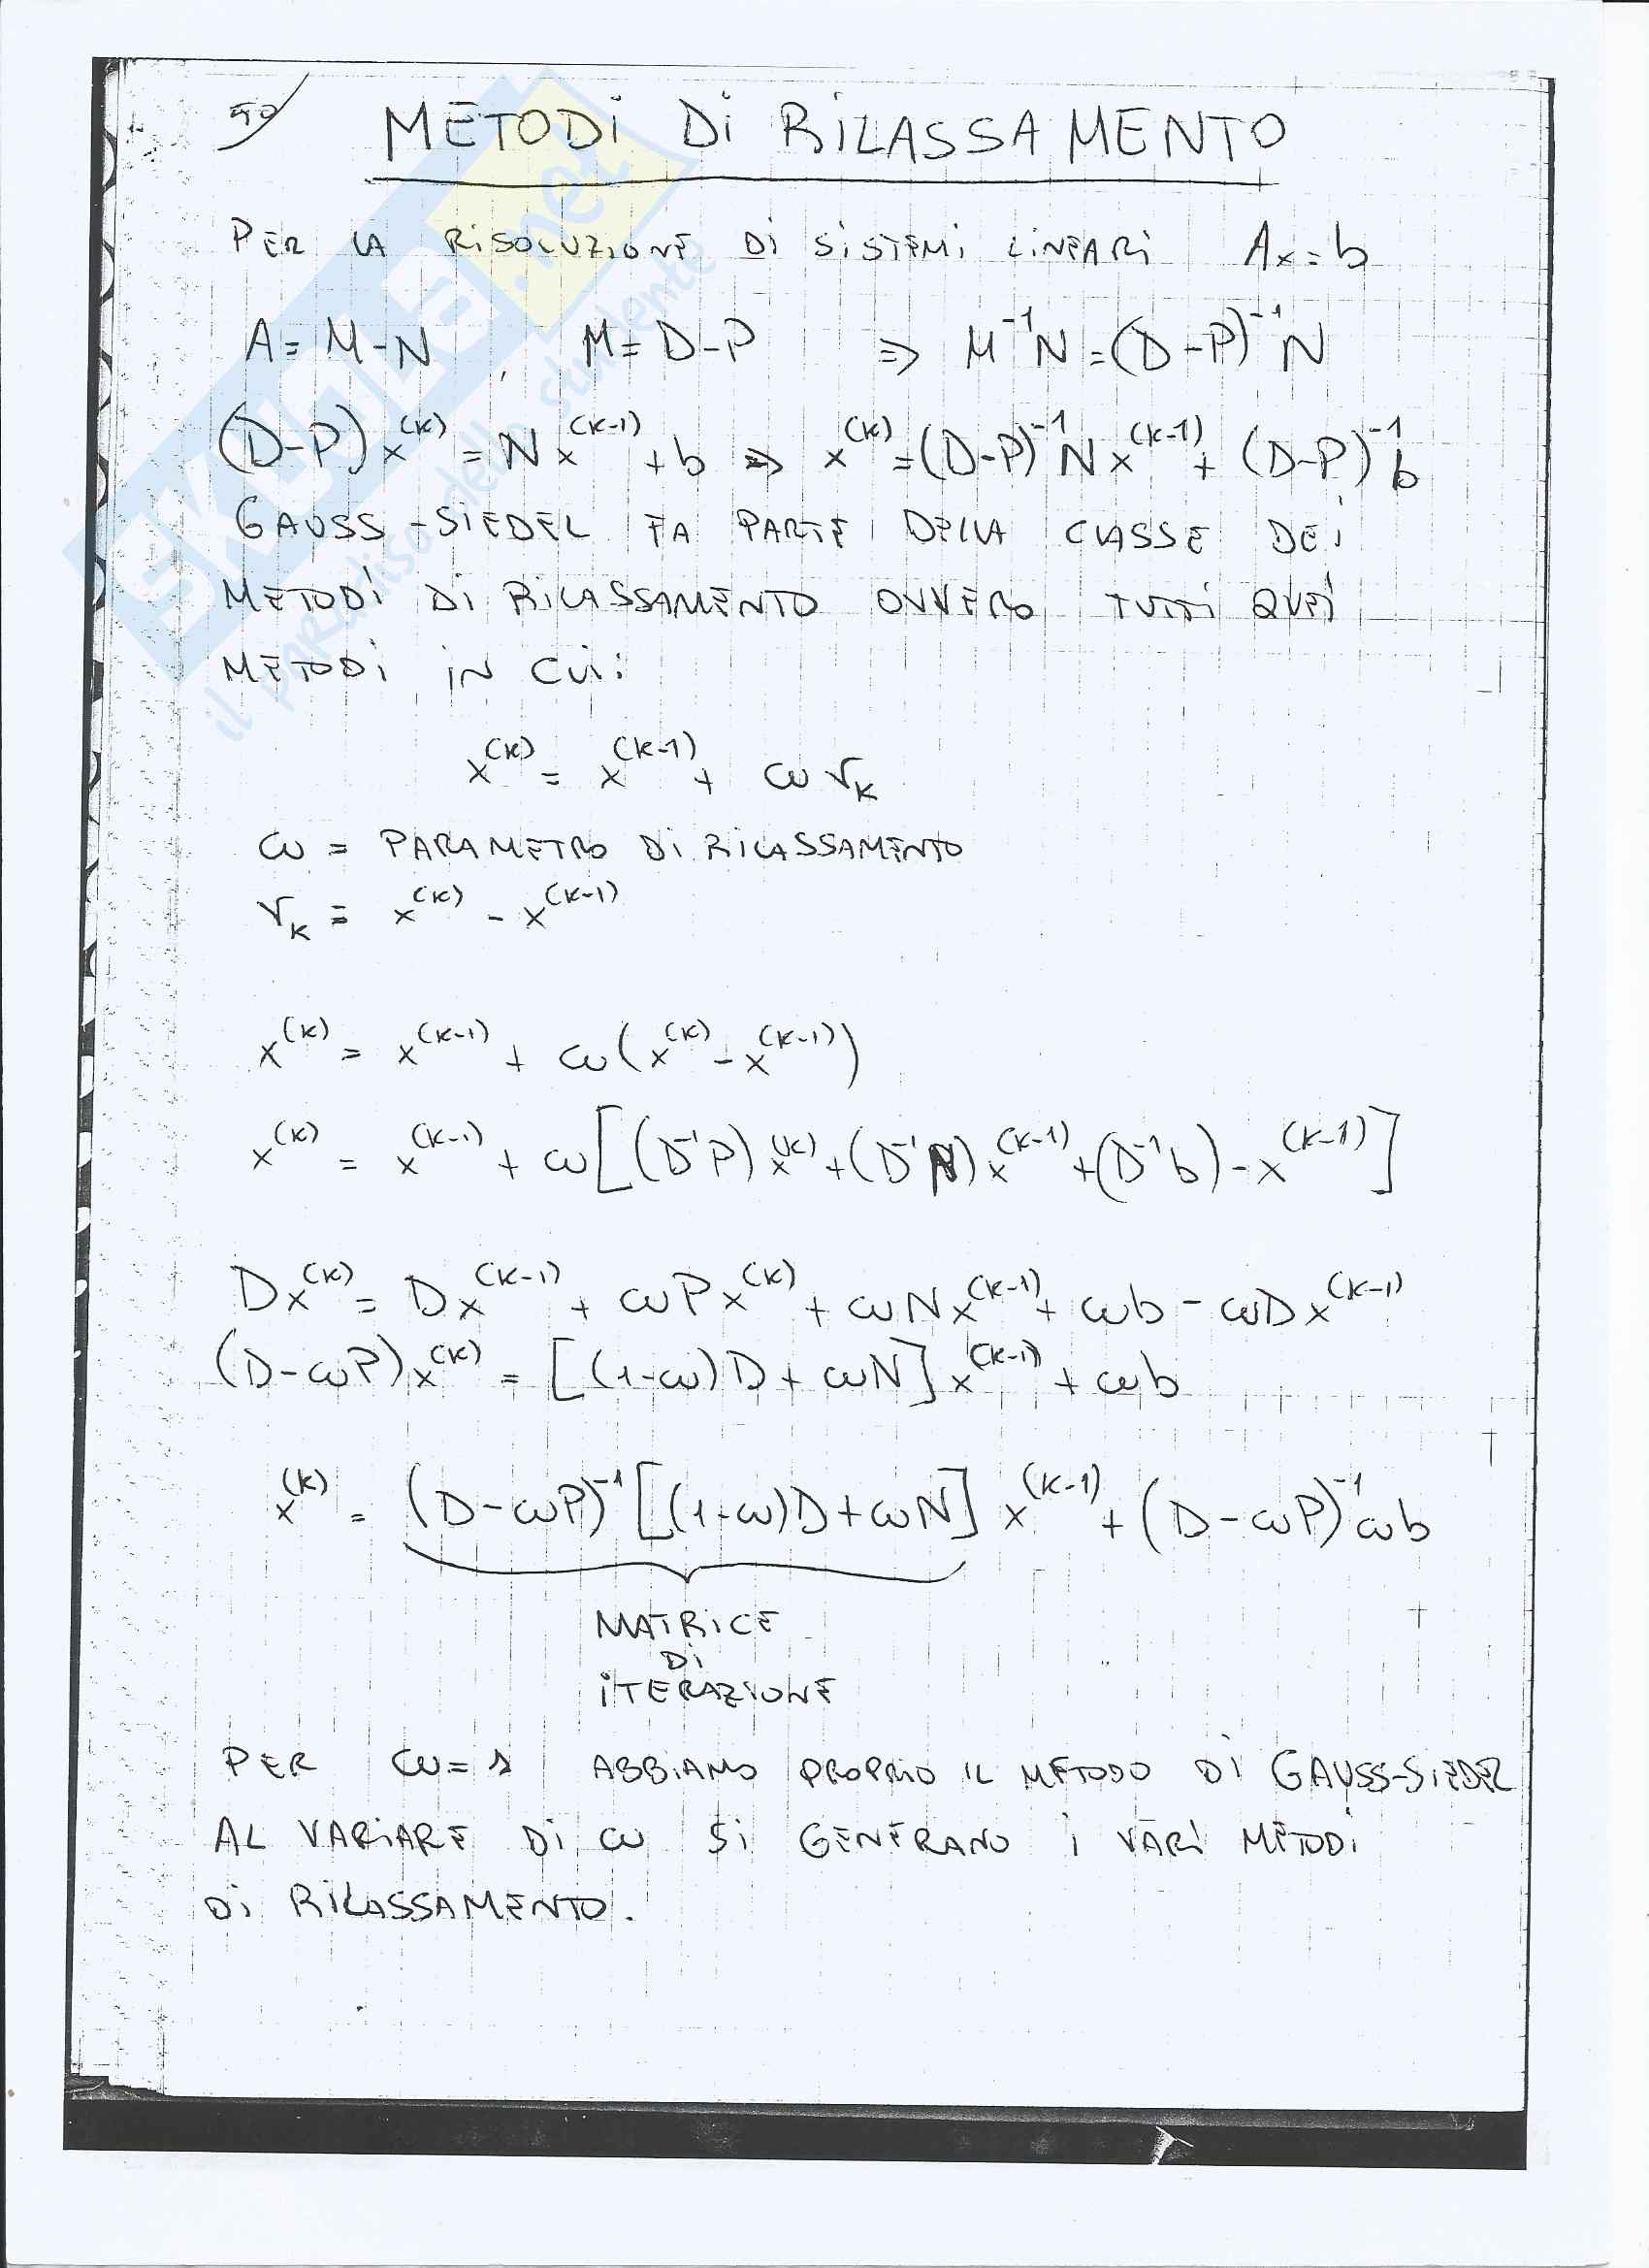 50
METODI DI RILASSAMENTO
PER LA RISOLUZIONE DI SISTEMI LINEARI Ax=b
A=M-N , M=D-P ⇒ M⁻¹N=(D-P)⁻¹N
(D-P)x⁽ᵏ⁾=Nx⁽ᵏ⁻¹⁾+b ⇒ x⁽ᵏ⁾=(D-P)⁻¹Nx⁽ᵏ⁻¹⁾+(D-P)⁻¹b
GAUSS-SIEDEL FA PARTE DELLA CLASSE DEI
METODI DI RILASSAMENTO OVVERO TUTTI QUEI
METODI IN CUI:
x⁽ᵏ⁾ = x⁽ᵏ⁻¹⁾ + ω rₖ
ω = PARAMETRO DI RILASSAMENTO
rₖ = x⁽ᵏ⁾ - x⁽ᵏ⁻¹⁾
x⁽ᵏ⁾ = x⁽ᵏ⁻¹⁾ + ω(x⁽ᵏ⁾ - x⁽ᵏ⁻¹⁾)
x⁽ᵏ⁾ = x⁽ᵏ⁻¹⁾ + ω[(D⁻¹P)x⁽ᵏ⁾+(D⁻¹N)x⁽ᵏ⁻¹⁾+(D⁻¹b)-x⁽ᵏ⁻¹⁾]
Dx⁽ᵏ⁾ = Dx⁽ᵏ⁻¹⁾ + ωPx⁽ᵏ⁾ + ωNx⁽ᵏ⁻¹⁾ + ωb - ωDx⁽ᵏ⁻¹⁾
(D-ωP)x⁽ᵏ⁾ = [(1-ω)D + ωN]x⁽ᵏ⁻¹⁾ + ωb
x⁽ᵏ⁾ = (D-ωP)⁻¹[(1-ω)D+ωN] x⁽ᵏ⁻¹⁾ + (D-ωP)⁻¹ωb
MATRICE
DI
ITERAZIONE
PER ω=1 ABBIAMO PROPRIO IL METODO DI GAUSS-SIEDEL
AL VARIARE DI ω SI GENERANO I VARI METODI
DI RILASSAMENTO.
SKUOLA.net
il paradiso dello studente